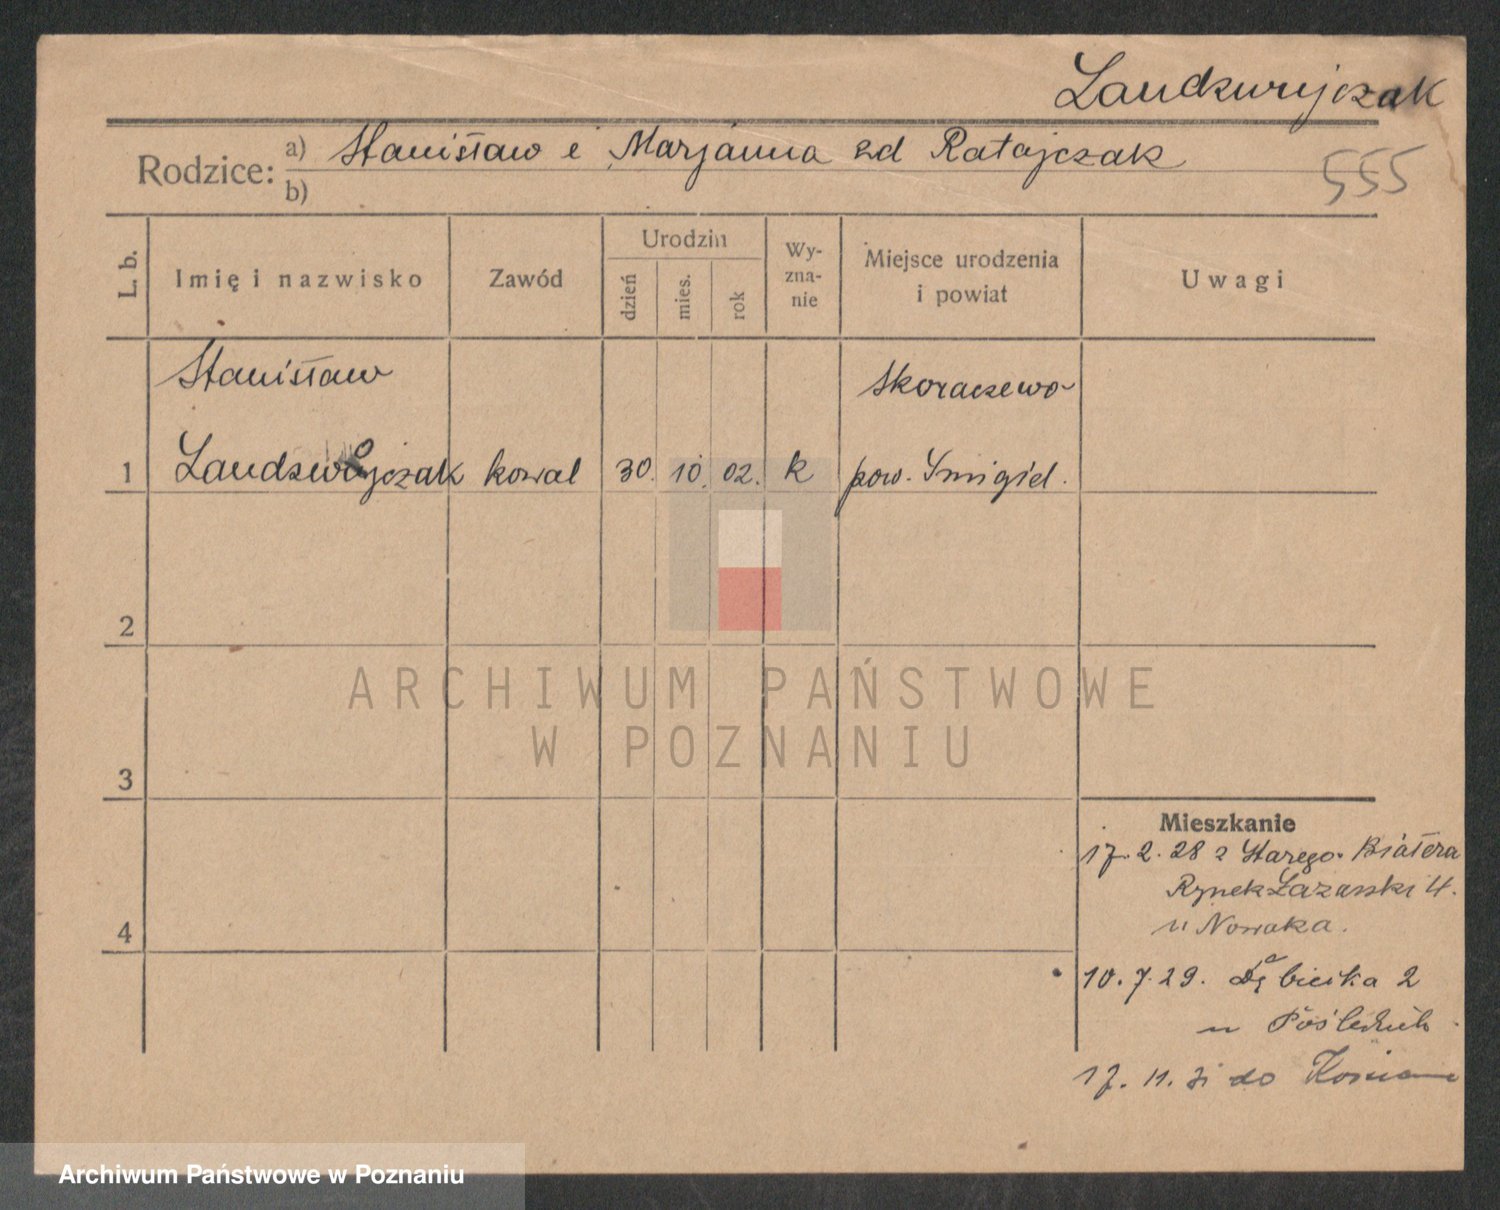 Landzwyjczak
Rodzice:
a) Stanisław i Marjanna zd Ratajczak
b)
555
L. b.
Imię i nazwisko
Zawód
Urodzin
dzień
mies.
rok
Wy-
zna-
nie
Miejsce urodzenia
i powiat
Uwagi
Stanisław
Skoraczewo
1 kowal 30. 10. 02. k pow. Śmigiel.
2
ARCHIWUM PAŃSTWOWE
W POZNANIU
3
Mieszkanie
17. 2. 28 z Starego
Rynek Łazarski 4.
u Nowaka.
4
10. 7. 29. Dąbiecka 2
u
17. 11. 31 do
Archiwum Państwowe w Poznaniu